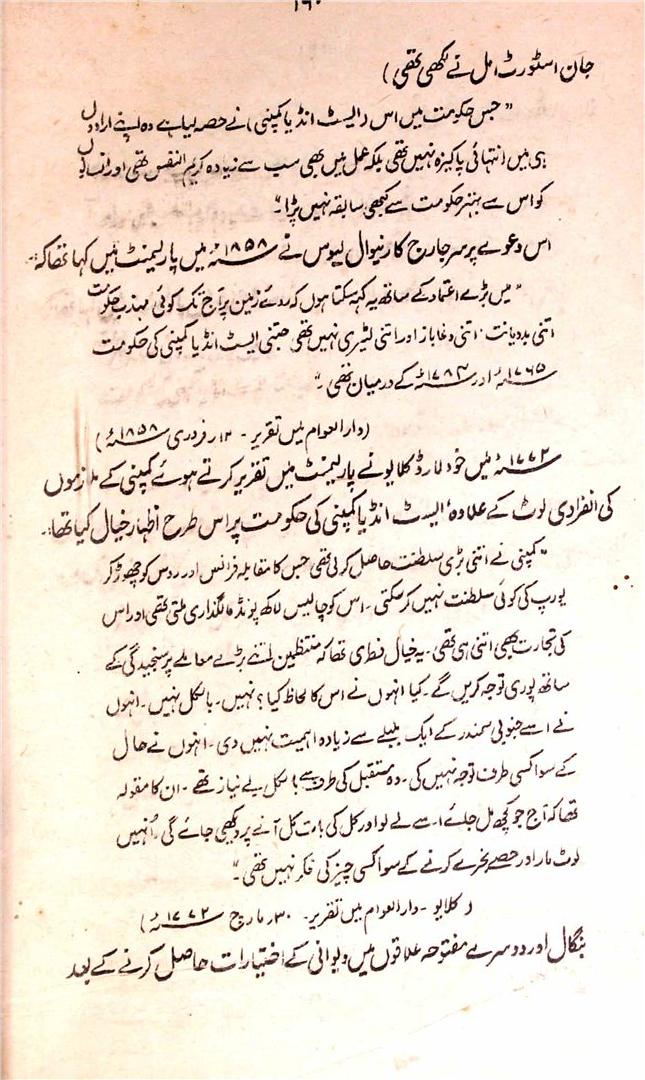 ۱۶۰
جان اسٹورٹ مل نے لکھی تھی)
"جس حکومت میں اس (ایسٹ انڈیا کمپنی) نے حصہ لیا ہے وہ اپنے ارادوں
ہی میں انتہائی پاکیزہ نہیں تھی بلکہ عمل میں بھی سب سے زیادہ کریم النفس تھی اور انسانوں
کو اس سے بہتر حکومت سے کبھی سابقہ نہیں پڑا۔"
اس دعوے پر سر جارج کارنیوال لیوس نے ۱۸۵۸ء میں پارلیمنٹ میں کہا تھا کہ:۔
"میں بڑے اعتماد کے ساتھ یہ کہہ سکتا ہوں کہ روئے زمین پر آج تک کوئی مہذب حکومت
اتنی بددیانت، اتنی دغاباز اور اتنی لٹیری نہیں تھی جتنی ایسٹ انڈیا کمپنی کی حکومت
۱۷۶۵ء اور ۱۷۸۴ء کے درمیان تھی۔"
(دارالعوام میں تقریر۔ ۱۲ر فروری ۱۸۵۸ء)
۱۷۷۲ء میں خود لارڈ کلایو نے پارلیمنٹ میں تقریر کرتے ہوئے کمپنی کے ملازموں
کی انفرادی لوٹ کے علاوہ ایسٹ انڈیا کمپنی کی حکومت پر اس طرح اظہار خیال کیا تھا:۔
"کمپنی نے اتنی بڑی سلطنت حاصل کرلی تھی جس کا مقابلہ فرانس اور روس کو چھوڑ کر
یورپ کی کوئی سلطنت نہیں کر سکتی۔ اس کو چالیس لاکھ پونڈ مالگذاری ملتی تھی اور اس
کی تجارت بھی اتنی ہی تھی۔ یہ خیال فطری تھا کہ منتظمین اتنے بڑے معاملے پر سنجیدگی کے
ساتھ پوری توجہ کریں گے۔ کیا انہوں نے اس کا لحاظ کیا؟ نہیں۔ بالکل نہیں۔ انہوں
نے اسے جنوبی سمندر کے ایک بلبلے سے زیادہ اہمیت نہیں دی۔ انہوں نے حال
کے سوا کسی طرف توجہ نہیں کی۔ وہ مستقبل کی طرف سے بالکل بے نیاز تھے۔ ان کا مقولہ
تھا کہ آج جو کچھ مل جائے اسے لے لو اور کل کی بات کل آنے پر دیکھی جائے گی۔ اُنہیں
لوٹ مار اور حصے بخرے کرنے کے سوا کسی چیز کی فکر نہیں تھی۔"
(کلایو۔ دارالعوام میں تقریر۔ ۳۰ر مارچ ۱۷۷۲ء)
بنگال اور دوسرے مفتوحہ علاقوں میں دیوانی کے اختیارات حاصل کرنے کے بعد